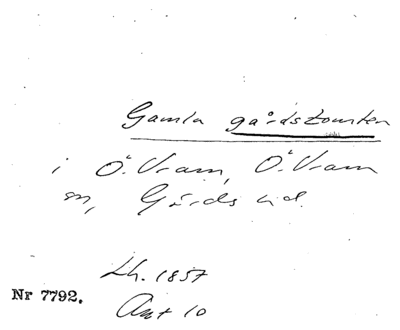 Gamla gårdstomten
i Ö. Vram, Ö. Vram
sn, Gärds hd.
Lh. 1857
Nr 7792.
Ant 10